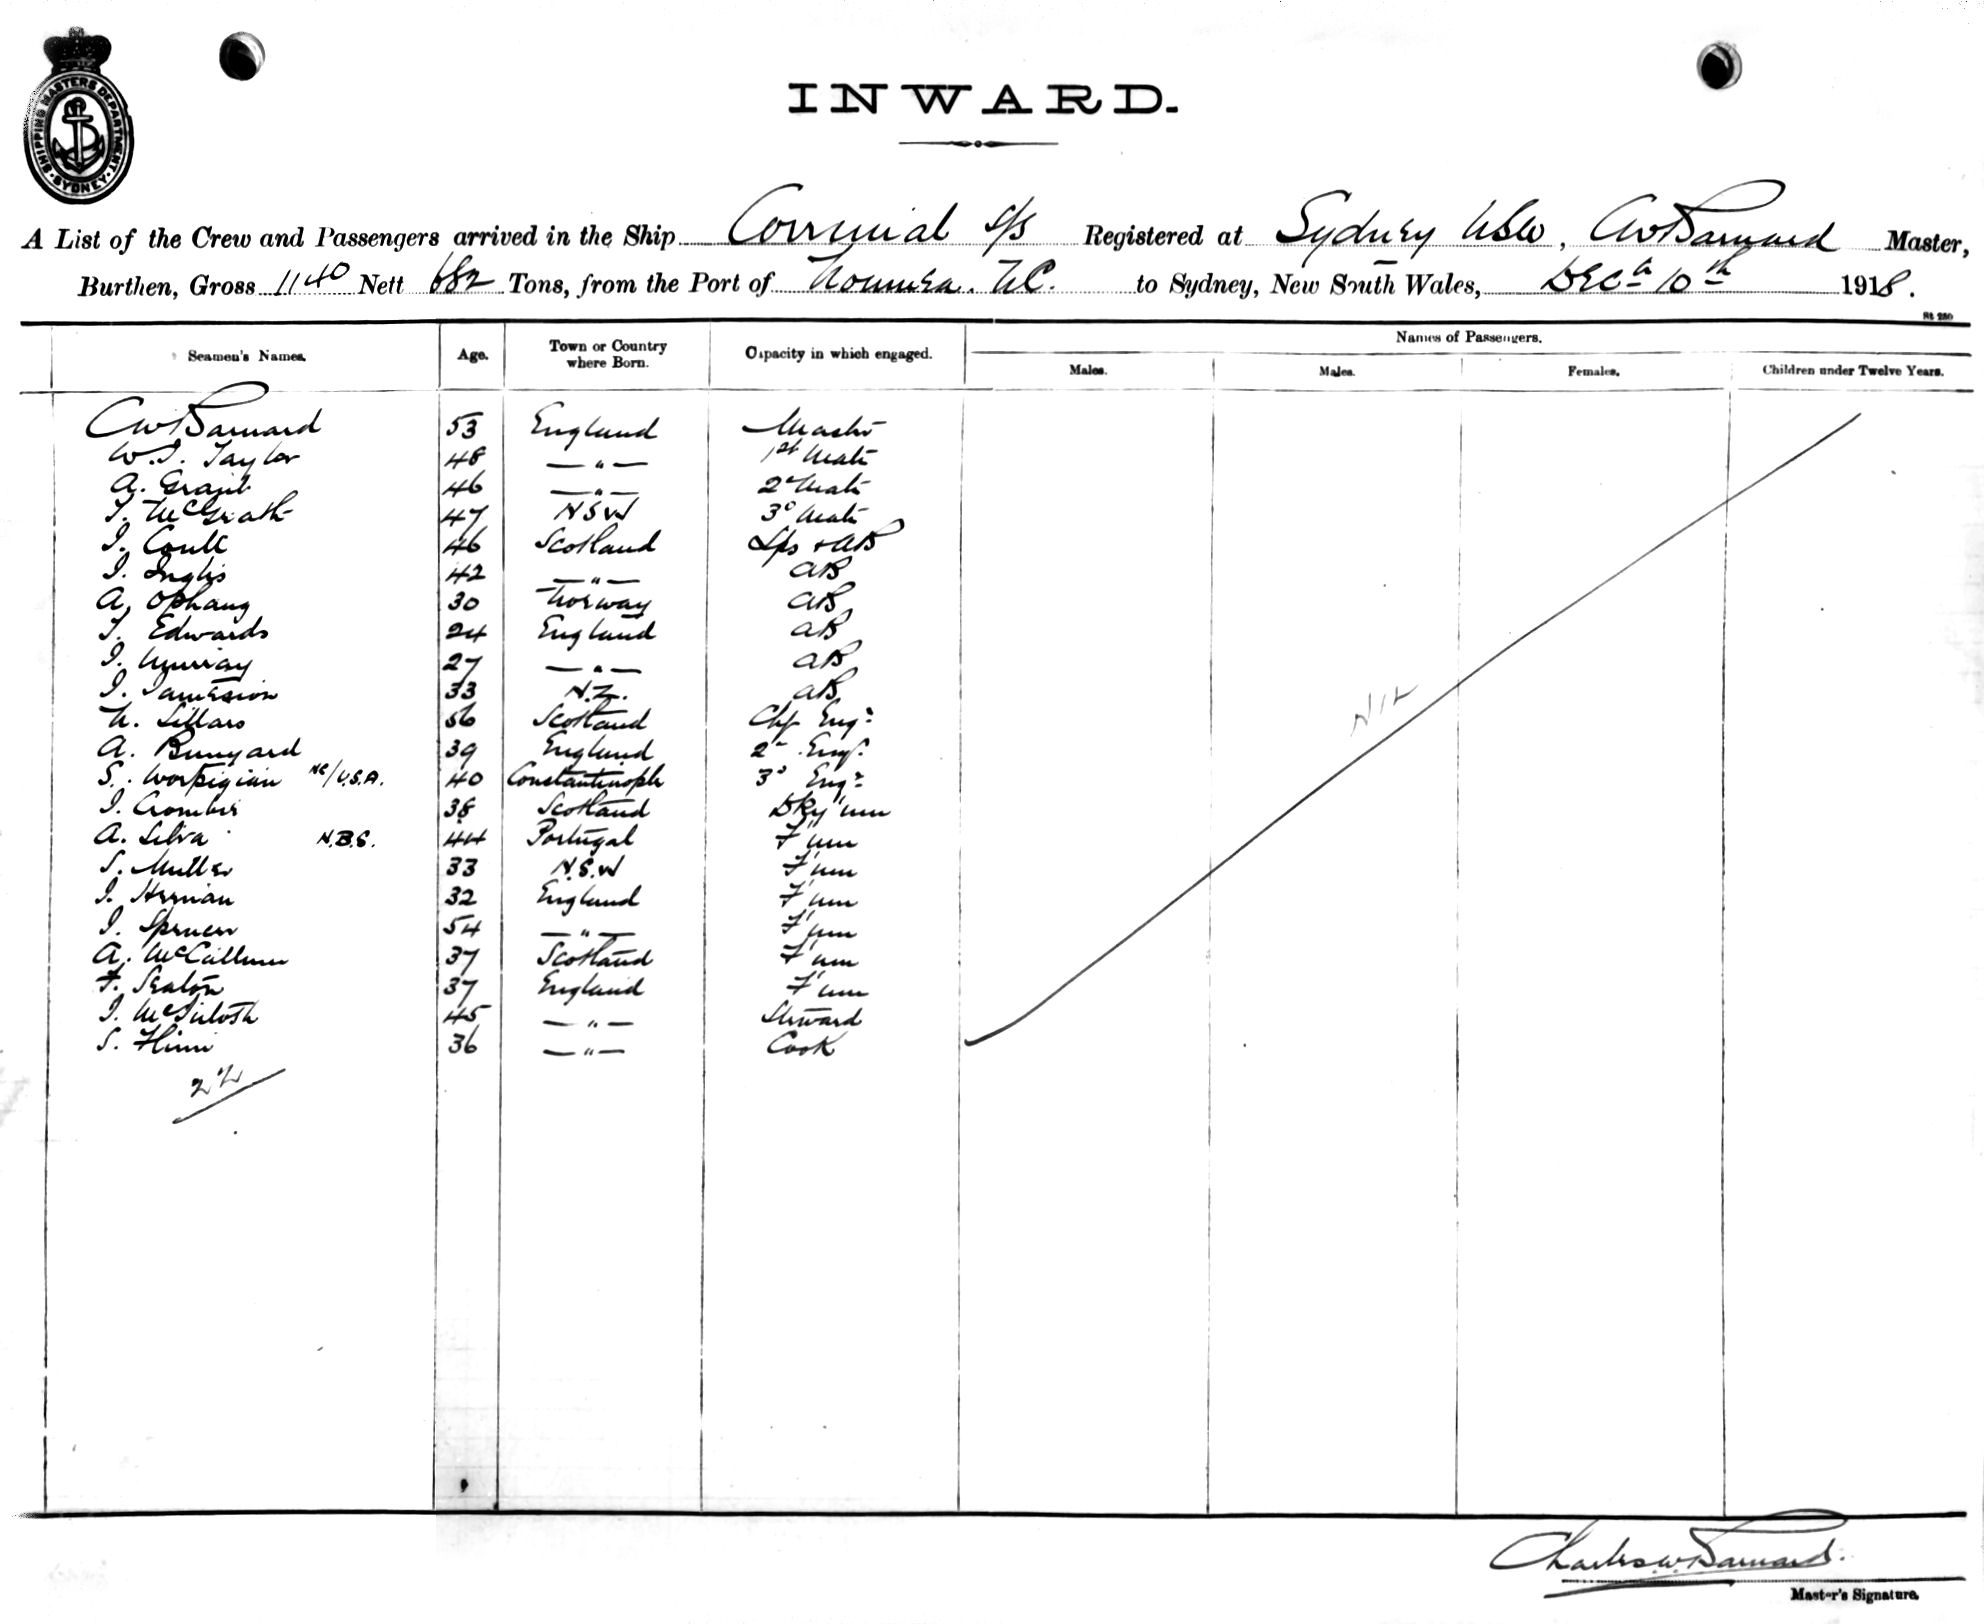 SHIPPING MASTERS DEPARTMENT
SYDNEY
INWARD.
A List of the Crew and Passengers arrived in the Ship Corrumal s/s Registered at Sydney NSW, CW Barnard Master,
Burthen, Gross 1140 Nett 682 Tons, from the Port of Noumea. N.C. to Sydney, New South Wales, Dec 10th 1918.
St 280
Seamen's Names. Age. Town or Country where Born. Capacity in which engaged. Names of Passengers.
Males. Males. Females. Children under Twelve Years.
CW Barnard 53 England Master
W.J. Taylor 48 — " — 1st Mate
A. Grant 46 — " — 2d Mate
J. McGrath 47 NSW 3d Mate
J. Coull 46 Scotland Lps + AB
J. Inglis 42 — " — AB
A. Ophaug 30 Norway AB
J. Edwards 24 England AB
J. Murray 27 — " — AB
J. Jamesion 33 N.Z. AB
N. Sillars 56 Scotland Chf Engr
A. Bunyard 39 England 2d Engr
S. Worpigian NC/U.S.A. 40 Constantinople 3d Engr
J. Crombie 38 Scotland Dky'mn
A. Silva N.B.S. 44 Portugal F'mn
S. Muller 33 N.S.W F'mn
J. Herman 32 England F'mn
J. Spencer 54 — " — F'mn
A. McCallum 37 Scotland F'mn
F. Seaton 37 England F'mn
J. McIntosh 45 — " — Steward
S. 36 — " — Cook
22
Nil
Charles W. Barnard.
Master's Signature.